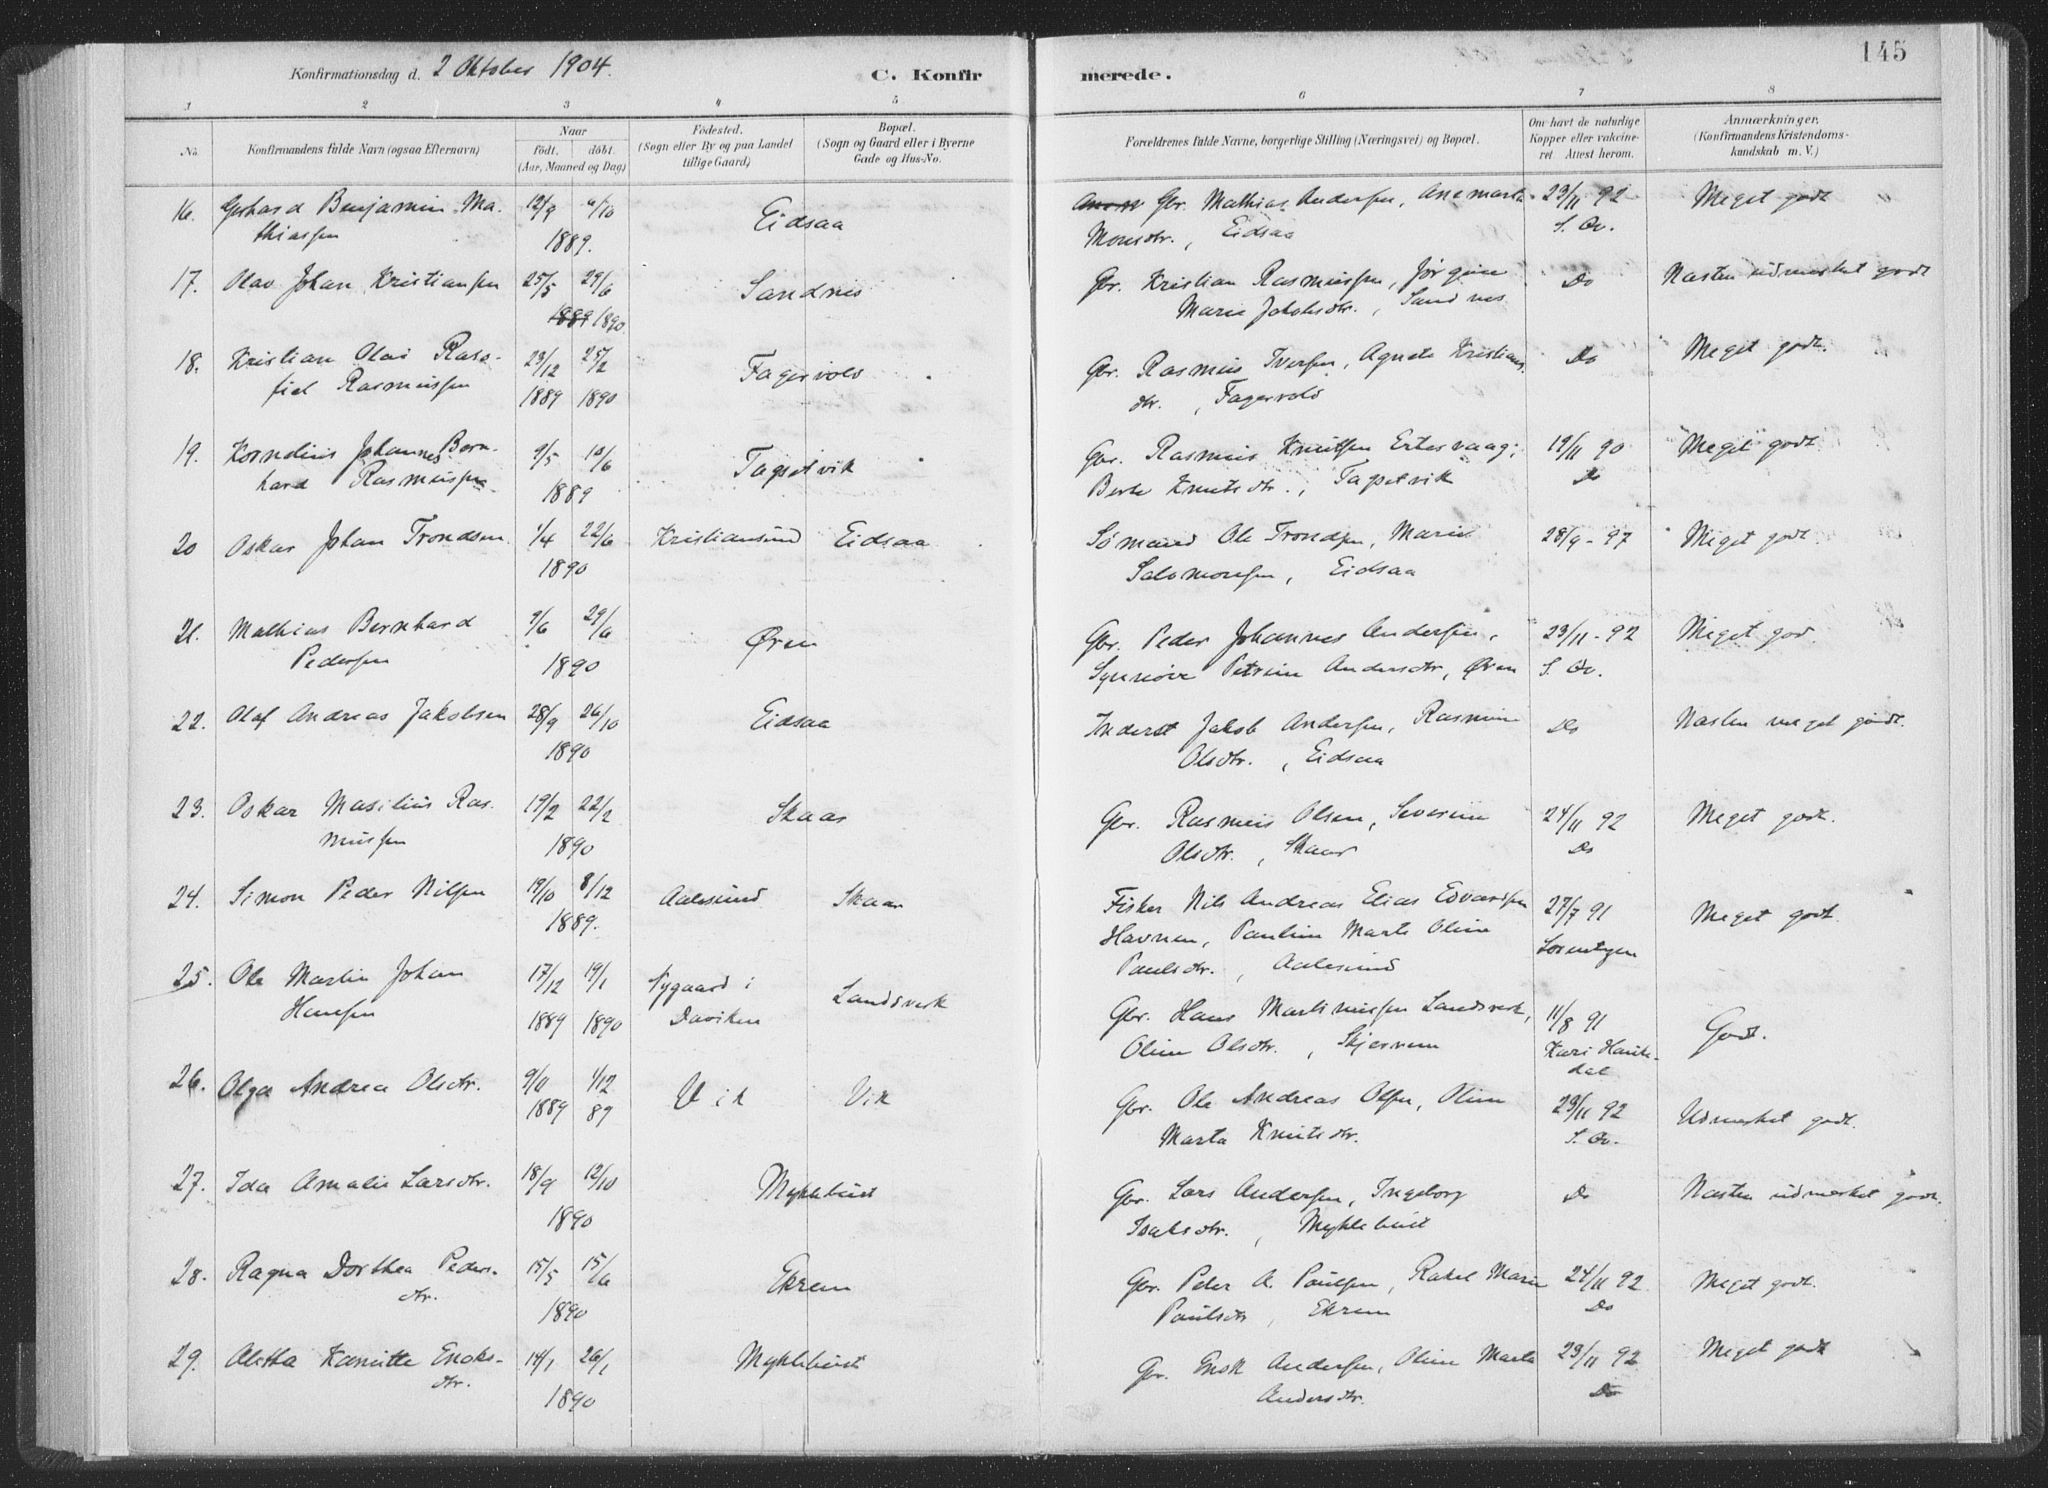 145
Konfirmationsdag d. 2 Oktober 1904.
C. Konfirmerede.
1 2 3 4 5 6 7 8
No.
Konfirmandens fulde Navn (ogsaa Efternavn)
Naar
født. døbt.
(Aar, Maaned og Dag)
Fødested.
(Sogn eller By og paa Landet
tillige Gaard)
Bopæl.
(Sogn og Gaard eller i Byerne
Gade og Hus-No.
Forældrenes fulde Navne, borgerlige Stilling (Næringsvei) og Bopæl.
Om havt de naturlige
Kopper eller vakcine-
ret. Attest herom.
Anmærkninger.
(Konfirmandens Kristendoms-
kundskab m. V.)
16. Gerhard Benjamin Ma- 12/9 6/10 Eidsaa Gbr. Mathias Andersen, Anemarta 23/11 92 Meget godt
thiassen 1889. Monsdtr., Eidsaa S. Qv.
17. Olav Johan Kristiansen 25/5 29/6 Sandnes Gbr. Kristian Rasmussen, Jørgine Do Næsten udmerket godt
1889 1890. Marie Jakobsdtr., Sandnes
18. Kristian Olai Raso- 23/12 25/2 Fagervold Gbr. Rasmus Iversen, Agnete Kristians Do Meget godt.
fiel Rasmussen 1889 1890 dtr., Fagervold
19. Kornelius Johannes Bern- 9/5 10/6 Tapetvik Gbr. Rasmus Knutsen Ertesvaag, 19/11 90 Meget godt
hard Rasmussen 1889 Berte Knutsdtr., Tapetvik Do
20 Oskar Johan Trondsen 1/4 22/6 Kristiansund Eidsaa Sømand Ole Trondsen, Marie 28/9 - 97 Meget godt
1890 Salomonsen, Eidsaa
21. Mathias Bernhard 9/6 29/6 Øren Gbr. Peder Johannes Andersen, 23/11 - 92 Meget god.
Pedersen 1890 Synnøve Petrine Andersdtr, Øren S. Qv.
22. Olaf Andreas Jakobsen 28/9 26/10 Eidsaa Inderst Jakob Andersen, Rasmine Do Næsten meget godt.
1890 Olsdtr., Eidsaa
23. Oskar Masilius Ras- 19/2 22/2 Skaar Gbr. Rasmus Olsen, Severine 24/11 92 Meget godt.
mussen 1890 Olsdtr., Skaar Do
24. Simon Peder Nilsen 19/10 8/12 Aalesund Skaar Fisker Nils Andreas Elias Edvardsen 27/7 91 Meget godt.
1889. Havnen, Pauline Marte Oline Lorentzen
Paulsdtr., Aalesund
25. Ole Martin Johan 17/12 19/1 Nygaard i Landsverk Gbr. Hans Martinussen Landsverk, 11/8 91 Godt.
Hansen 1889 1890 Daviken Oline Olsdtr., Skjersnem Kari Haute-
dal
26. Olga Andrea Olsdtr. 9/11 1/12 Vik Vik Gbr. Ole Andreas Olsen, Oline 23/11 92 Udmerket godt.
1889 89 Marta Knutsdtr. S. Qv.
27. Ida Amalie Larsdtr. 18/9 12/10 Myklebust Gbr. Lars Andersen, Ingeborg Do Næsten udmerket godt.
1890 Isaksdtr., Myklebust
28. Ragna Dorthea Peders- 15/5 15/6 Ekrem Gbr. Peder A. Paulsen, Rakel Marie 24/11 92. Meget godt.
dtr. 1890 Paulsdtr, Ekrem Do
29. Aletha Kanutte Enoks- 14/1 26/1 Myklebust Gbr. Enok Andersen, Oline Marta 23/11 92 Meget godt
dtr. 1890 Andersdtr. Do